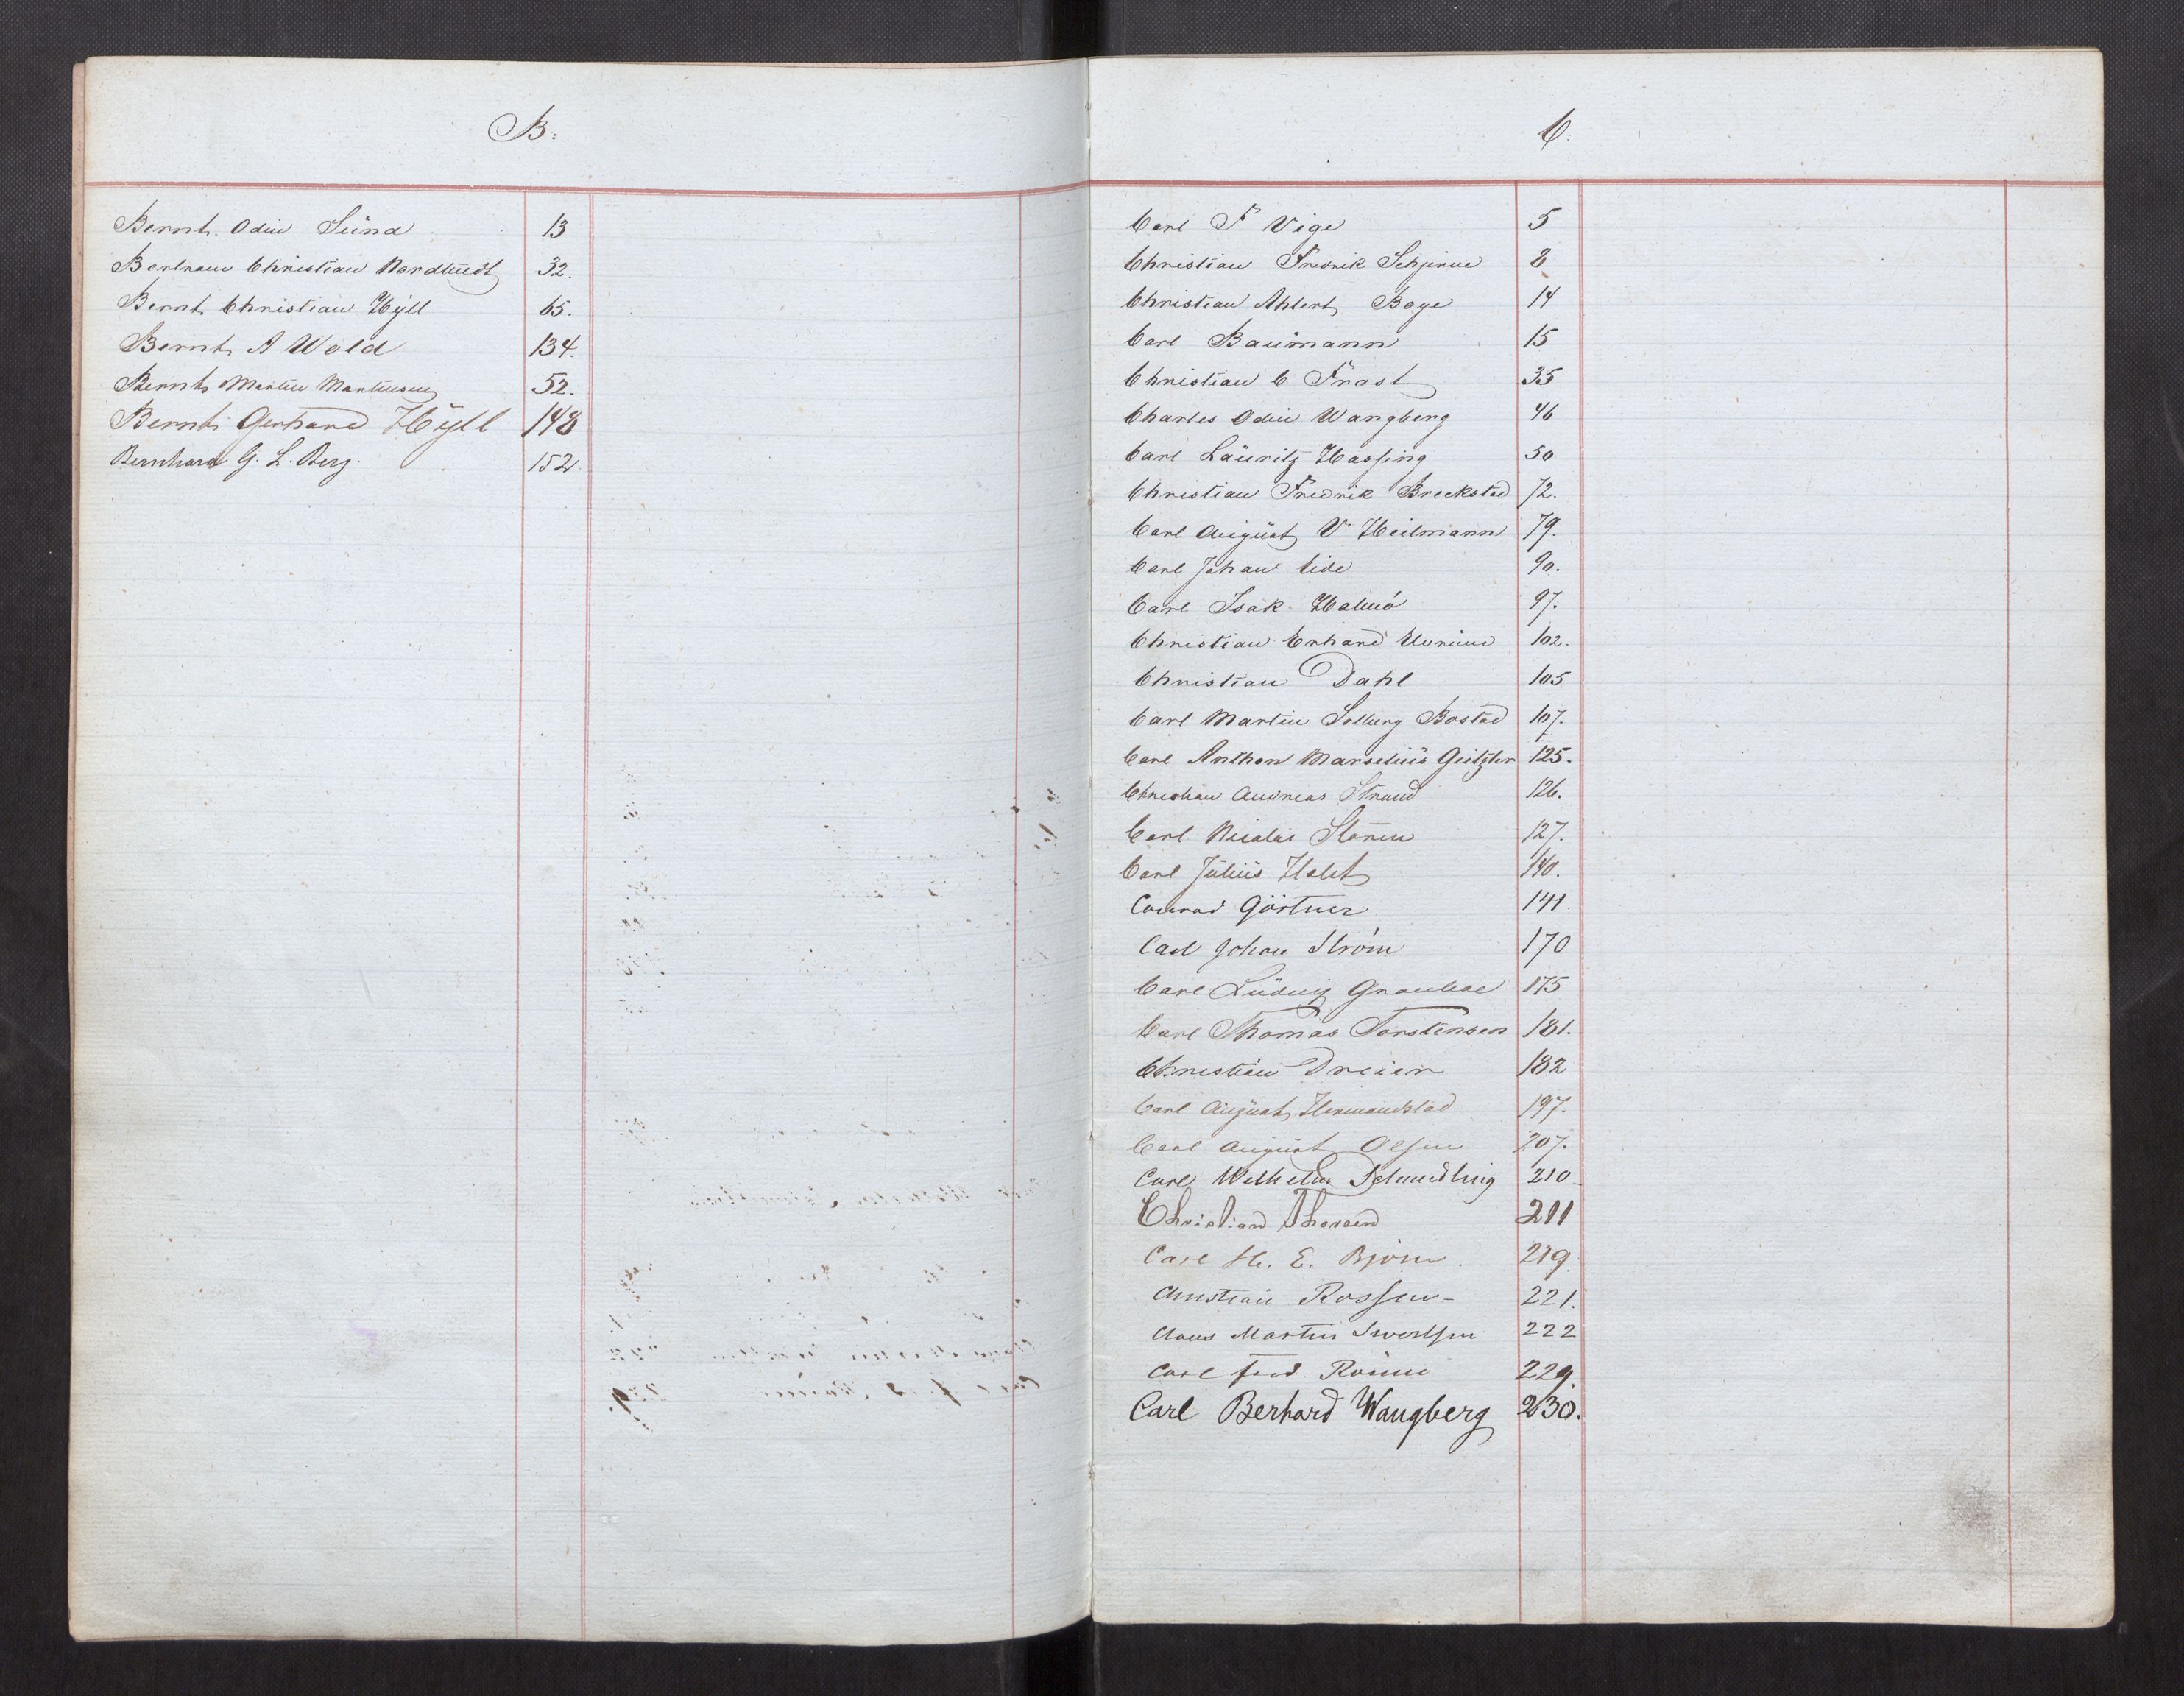 B:
Bernt Odin Sund 13
Bertram Christian Nordtvedt 32.
Bernt Christian Høyll 65.
Bernt A Wold 134.
Bernt Martin Martinsen 52.
Bernt Gerhard Høyll 148
Bernhard G. L. Berg. 152.
C.
Carl F Vige 5
Christian Fredrik Schjerve 8
Christian Ahlert Boye 14
Carl Baumann 15
Christian C Frost 35
Charles Odin Wangberg 46
Carl Lauritz Hassing 50
Christian Fredrik Breckstad 72.
Carl August V. Heilmann 79.
Carl Johan Eide 90.
Carl Isak 97.
Christian Erhard 102.
Christian Dahl 105
Carl Martin Solberg Bostad 107.
Carl Anthon Marselius 125.
Christian Andreas Strand 126.
Carl Nicolai Støren 127.
Carl Julius Holst 140.
Conrad Görtner 141.
Carl Johan Strøm 170
Carl Ludvig 175
Carl Thomas Torstensen 181.
Christian Dreier 182
Carl August Hermandstad 197.
Carl August Olsen 207.
Carl Wilhelm Schmedling 210
Christian Thorsen 211
Carl H. E. Bjørn. 219
Christian Rossen 221.
Claus Martin Sivertsen 222
Carl Ferd Rønne 229.
Carl Berhard Wangberg 230.